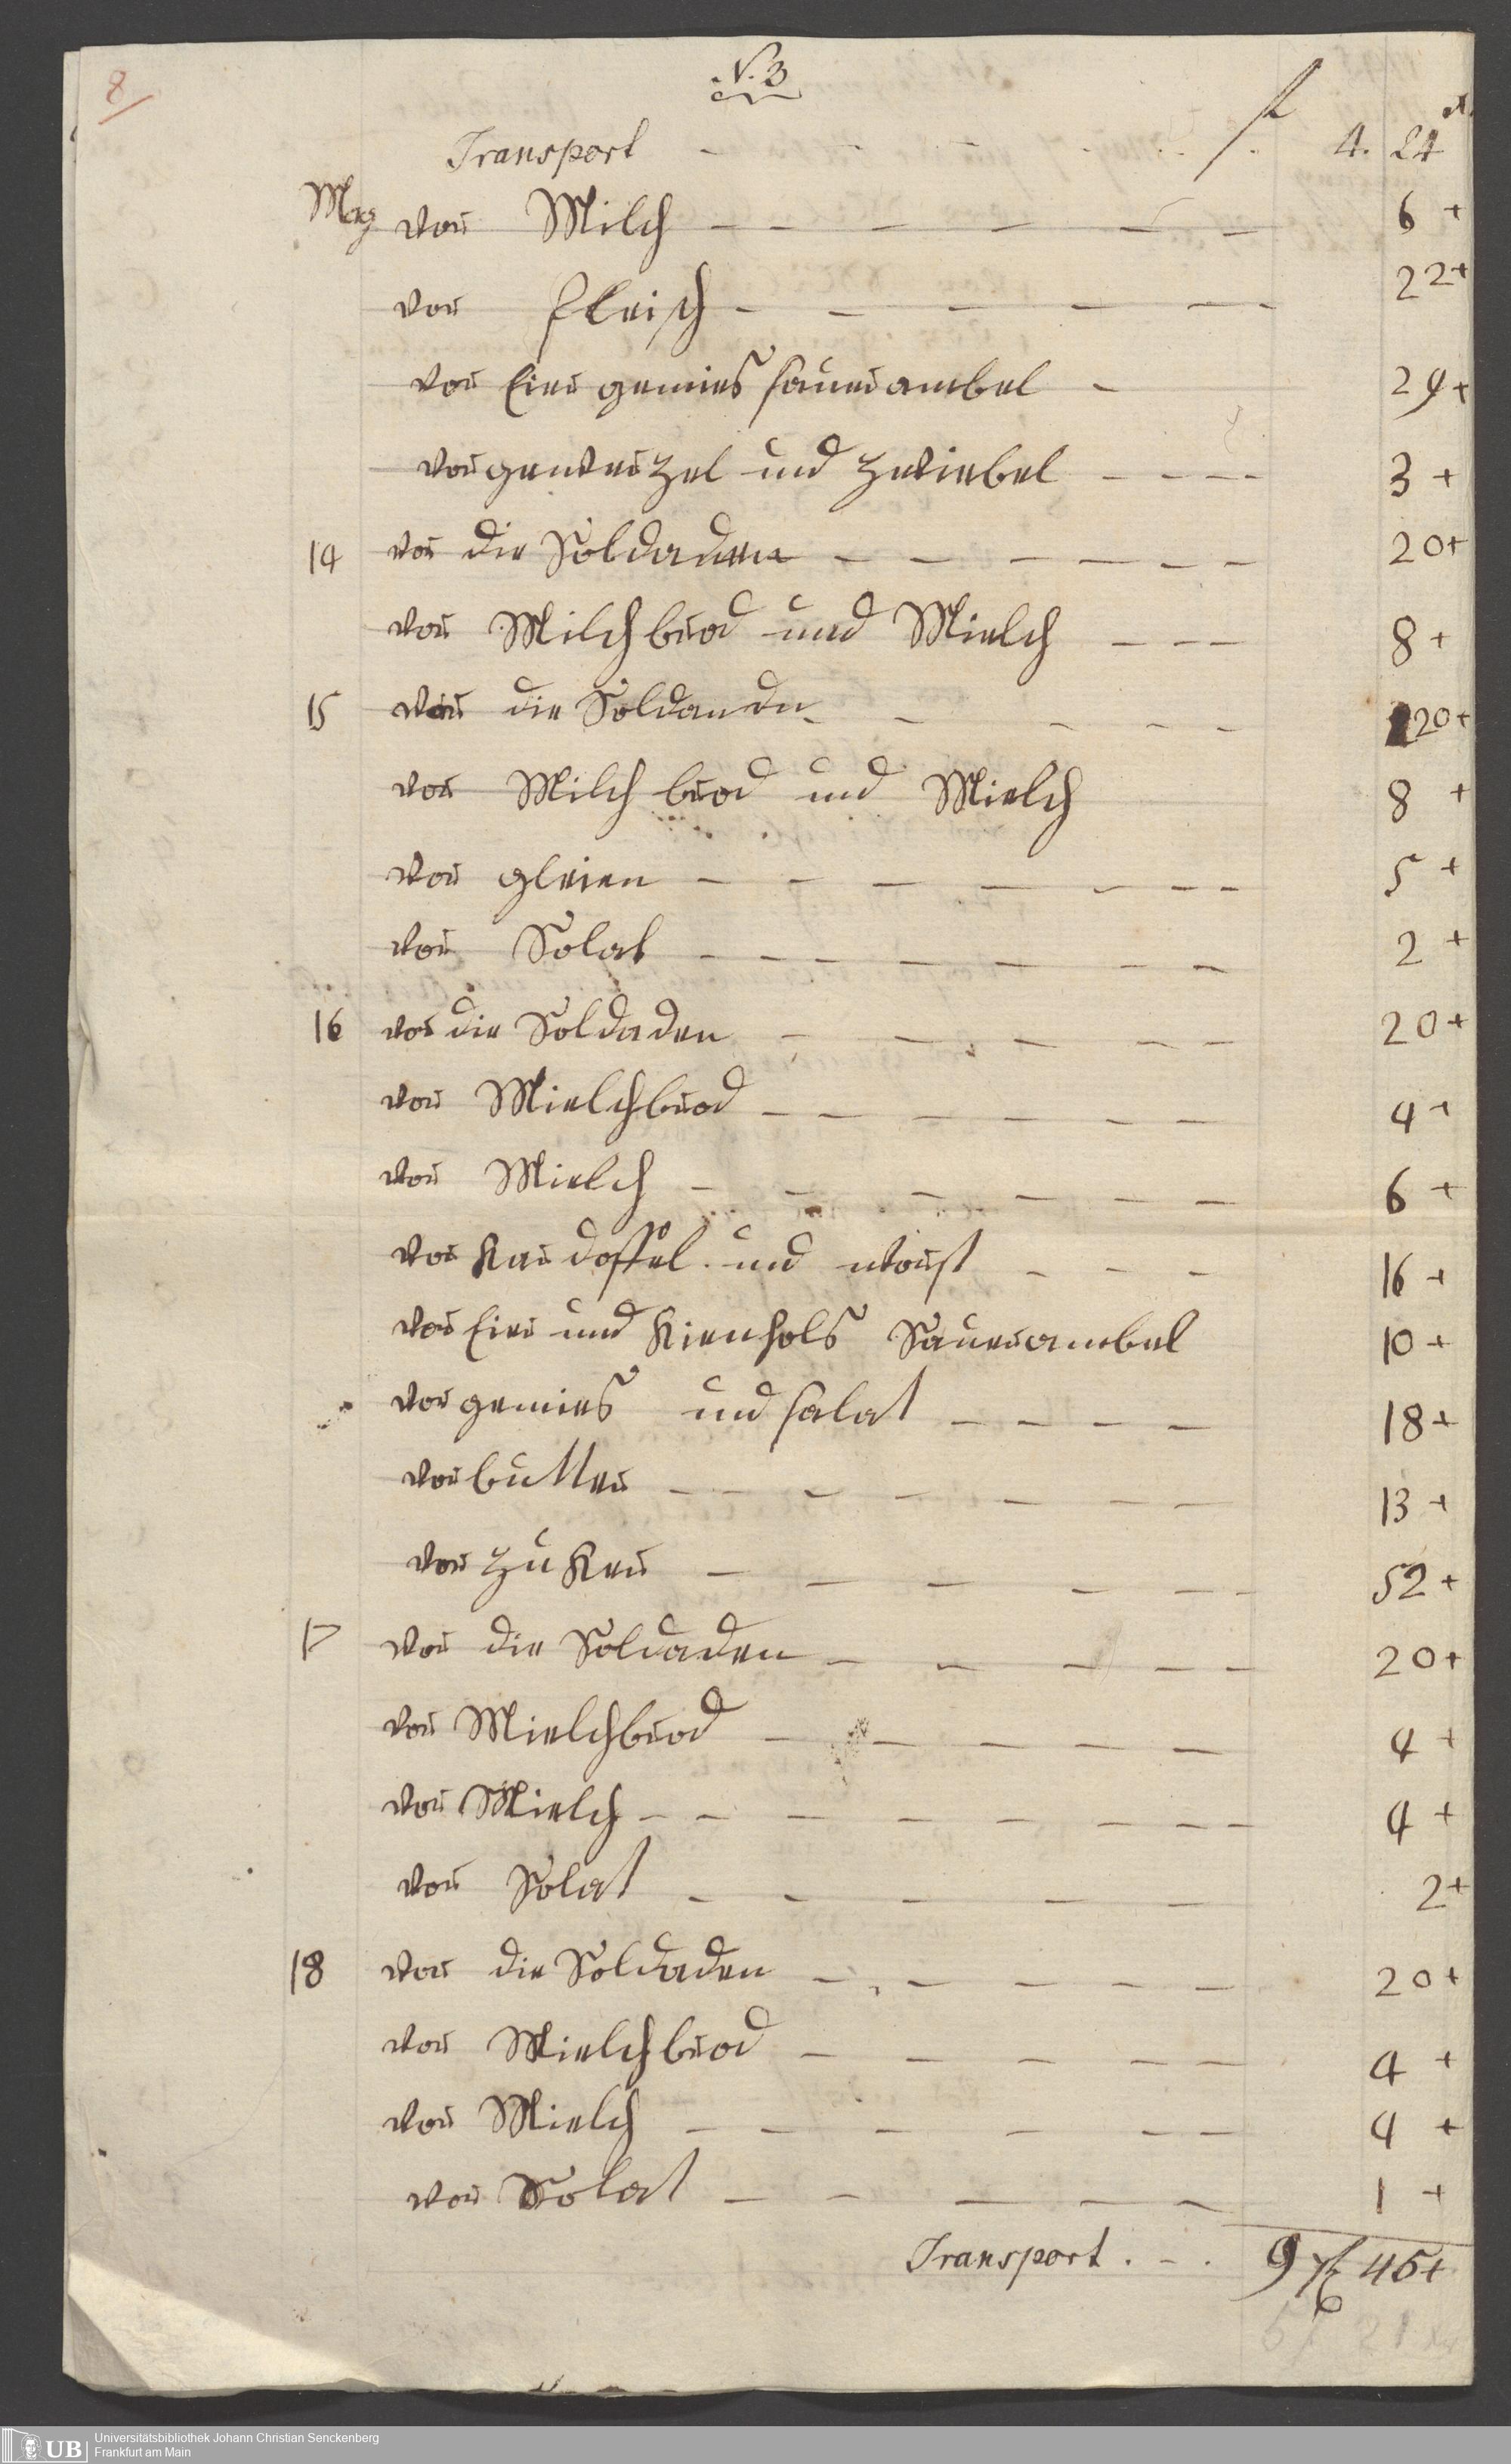 8
N. 3
Transport - - - - - f. 4. 24 x.
May vor Milch - - - - - - 6 +
vor fleisch - - - - - 22+
vor Eier gemies sauerambel - 24+
vor und zwiebel - - - - 3 +
14 vor die Soldaden - - - - - - 20+
vor Milchbrod und Mielch - - - 8 +
15 vor die Soldanden - - - - - 20+
vor Milch brod und Mielch 8 +
vor gleien - - - - - - - 5 +
vor Solat - - - - - - - 2 +
16 vor die Soldaden - - - - - 20+
vor Mielchbrod - - - - - - 4 +
vor Mielch - - - - - - 6 +
vor Kardoffel und worst - - - 16 +
vor Eier und Kienhols Sauerambel 10 +
vor gemies und salat - - - - 18+
vor butter - - - - - - - 13 +
vor zuker - - - - - - 52+
17 vor die Soldaden - - - - - 20+
vor Mielchbrod - - - - - 4 +
vor Mielch - - - - - - - - 4 +
vor Solat - - - - - 2+
18 vor die Soldaden - - - - - 20+
vor Mielchbrod - - - - - 4 +
vor Mielch - - - - - - 4 +
vor Solat - - - - - 1 +
Transport . - . 9 f 45+
UB Universitätsbibliothek Johann Christian Senckenberg
Frankfurt am Main